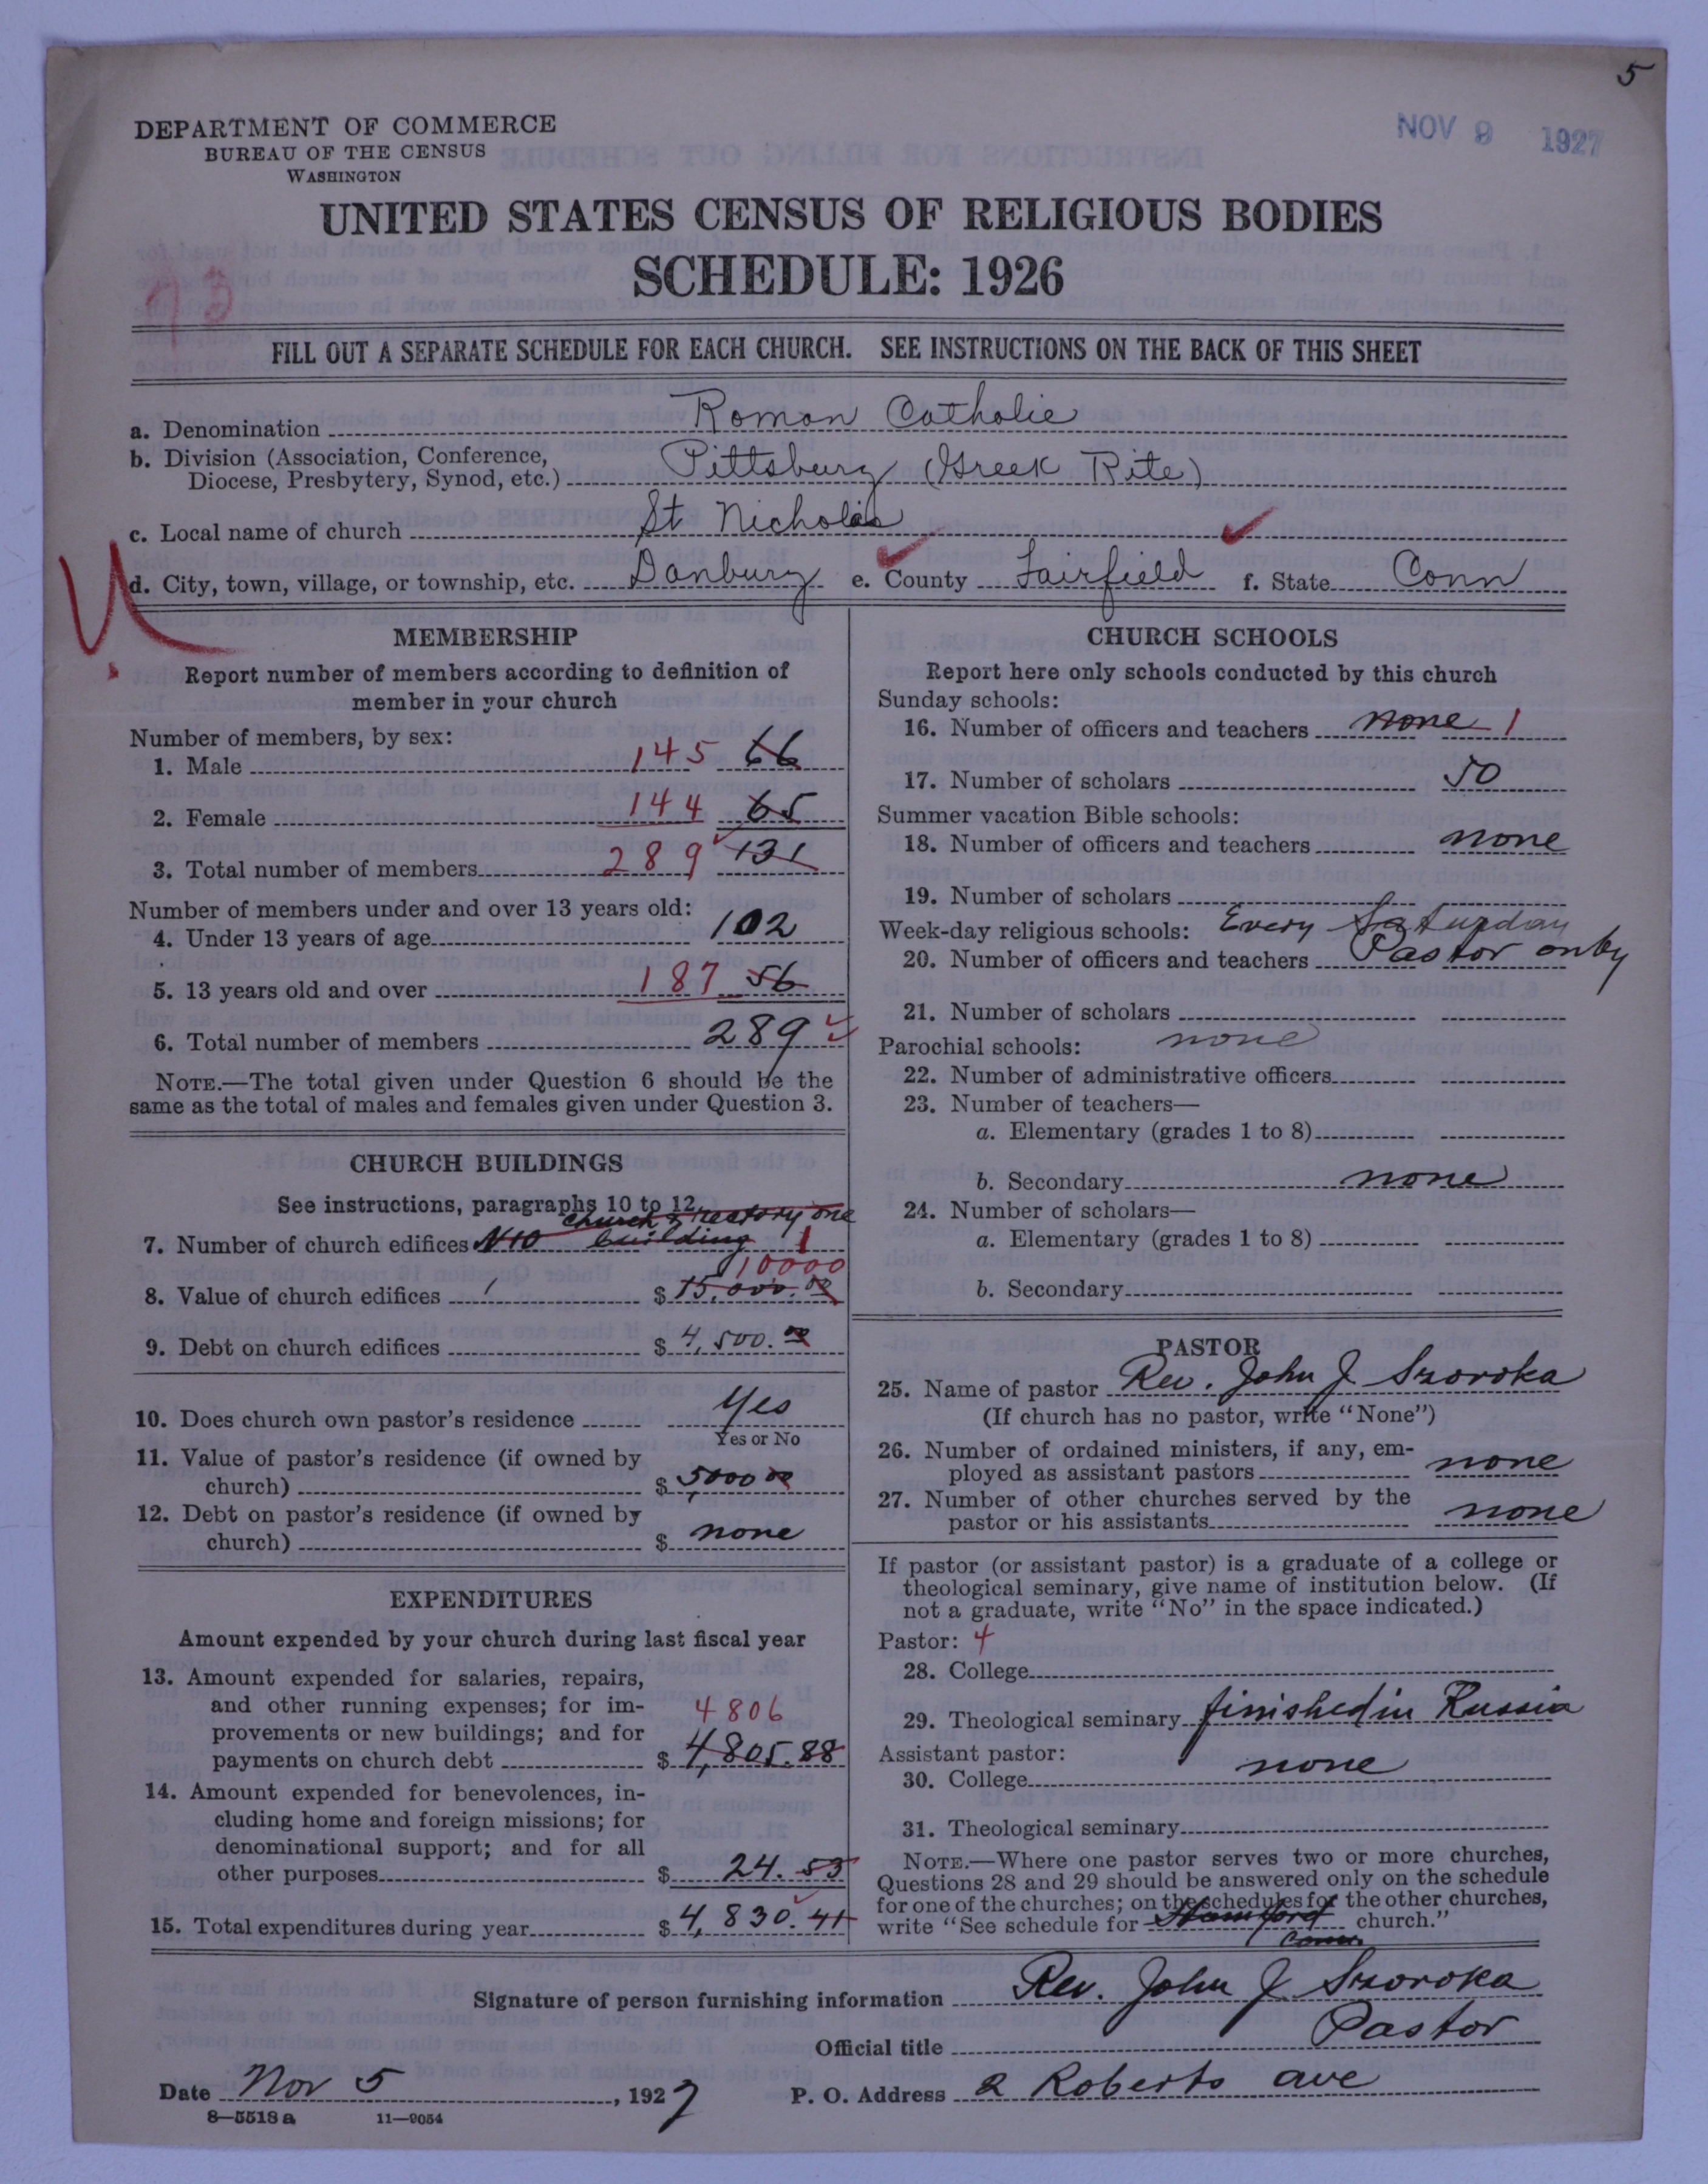 5
NOV 9 1927
DEPARTMENT OF COMMERCE
BUREAU OF THE CENSUS
WASHINGTON
UNITED STATES CENSUS OF RELIGIOUS BODIES
SCHEDULE: 1926
FILL OUT A SEPARATE SCHEDULE FOR EACH CHURCH. SEE INSTRUCTIONS ON THE BACK OF THIS SHEET
a. Denomination Roman Catholic
b. Division (Association, Conference,
Diocese, Presbytery, Synod, etc.) Pittsburg (Greek Rite)
c. Local name of church St Nicholas
d. City, town, village, or township, etc. Danbury e. County Fairfield f. State Conn
MEMBERSHIP
Report number of members according to definition of
member in your church
Number of members, by sex:
1. Male 145 66
2. Female 144 65
3. Total number of members 289 131
Number of members under and over 13 years old:
4. Under 13 years of age 102
5. 13 years old and over 187 56
6. Total number of members 289
NOTE.—The total given under Question 6 should be the
same as the total of males and females given under Question 3.
CHURCH BUILDINGS
See instructions, paragraphs 10 to 12
church & rectory one
7. Number of church edifices building 1
10000
8. Value of church edifices $ 15,000.00
9. Debt on church edifices $ 4,500.00
10. Does church own pastor's residence Yes
Yes or No
11. Value of pastor's residence (if owned by
church) $ 5,000 00
12. Debt on pastor's residence (if owned by
church) $ none
EXPENDITURES
Amount expended by your church during last fiscal year
13. Amount expended for salaries, repairs,
and other running expenses; for im-
provements or new buildings; and for 4806
payments on church debt $ 4,805.88
14. Amount expended for benevolences, in-
cluding home and foreign missions; for
denominational support; and for all
other purposes $ 24.53
15. Total expenditures during year $ 4,830.41
CHURCH SCHOOLS
Report here only schools conducted by this church
Sunday schools:
16. Number of officers and teachers none 1
17. Number of scholars 50
Summer vacation Bible schools:
18. Number of officers and teachers none
19. Number of scholars
Week-day religious schools: Every Saturday
20. Number of officers and teachers Pastor only
21. Number of scholars
Parochial schools: none
22. Number of administrative officers
23. Number of teachers—
a. Elementary (grades 1 to 8)
b. Secondary none
24. Number of scholars—
a. Elementary (grades 1 to 8)
b. Secondary
PASTOR
25. Name of pastor Rev. John J Szoroka
(If church has no pastor, write "None")
26. Number of ordained ministers, if any, em-
ployed as assistant pastors none
27. Number of other churches served by the
pastor or his assistants none
If pastor (or assistant pastor) is a graduate of a college or
theological seminary, give name of institution below. (If
not a graduate, write "No" in the space indicated.)
Pastor: 4
28. College
29. Theological seminary finished in Russia
Assistant pastor:
30. College none
31. Theological seminary
NOTE.—Where one pastor serves two or more churches,
Questions 28 and 29 should be answered only on the schedule
for one of the churches; on the schedules for the other churches,
write "See schedule for Stamford church."
Conn.
Signature of person furnishing information Rev. John J Szoroka
Official title Pastor
Date Nov 5, 1927 P. O. Address 2 Roberts ave
8—5518a 11—9054